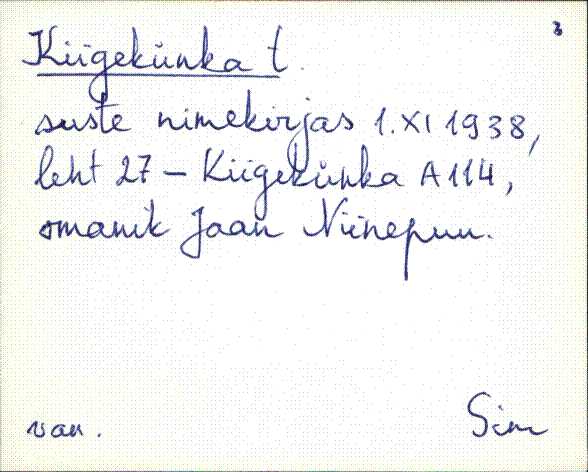 Kiigekünka t.
suste nimekirjas 1.XI 1938,
leht 27 – Kiigekünka A114,
omanik Jaan Niinepuu.
van. Sim